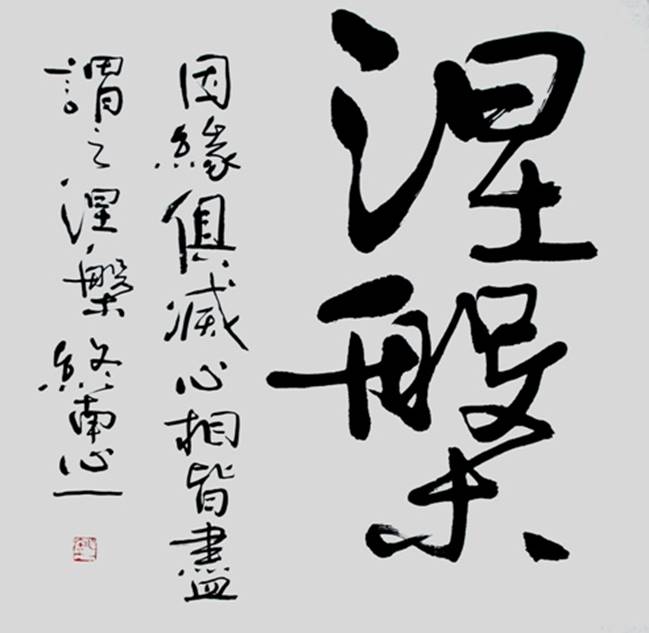 涅槃
因緣俱滅心相皆盡
謂之涅槃終南心一